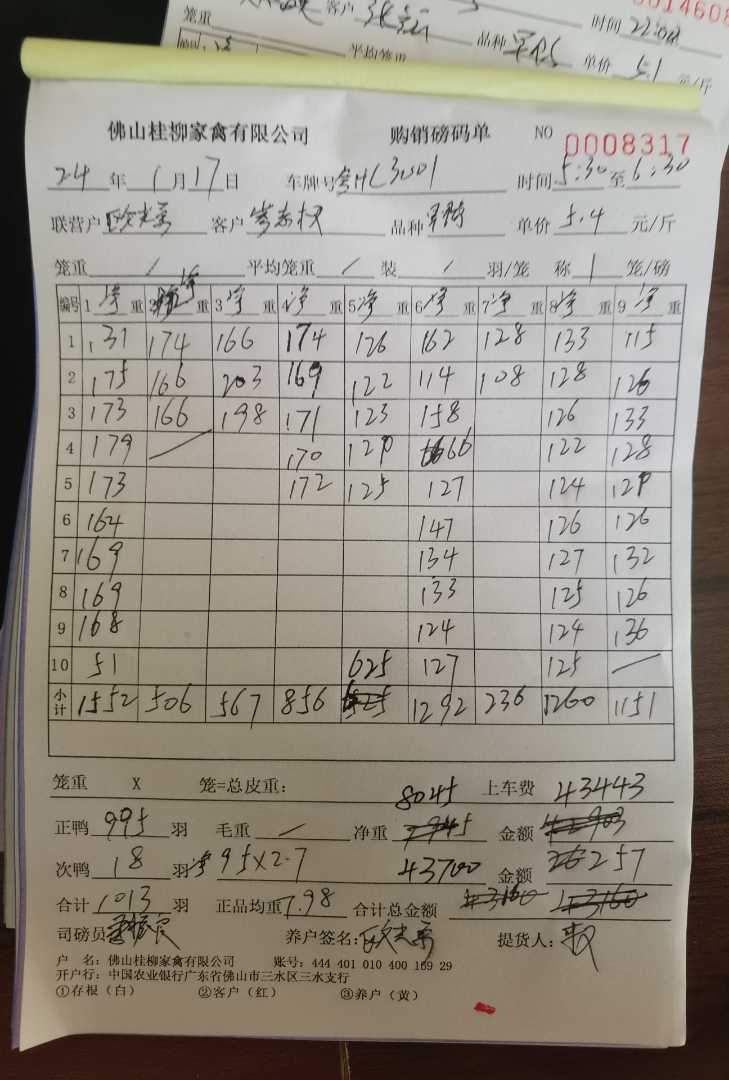 客户
时间 22:00
笼重
平均笼重
品种
单价 5.1 元/斤
佛山桂柳家禽有限公司 购销磅码单 NO 0008317
24 年 1 月 17 日 车牌号 3001 时间 5:30 至 6:30
联营户 客户 品种 单价 5.4 元/斤
笼重 / 平均笼重 / 装 / 羽/笼 称 1 笼/磅
编号 1 净 重 2 净 重 3 净 重 净 重 5 净 重 6 净 重 7 净 重 8 净 重 9 净 重
1 131 174 166 174 126 162 128 133 115
2 175 166 203 169 122 114 108 128 126
3 173 166 198 171 123 158 126 133
4 179 / 170 129 166 122 128
5 173 172 125 127 124 129
6 164 147 126 126
7 169 134 127 132
8 169 133 125 126
9 168 124 124 136
10 51 625 127 125 /
小计 1552 506 567 856 1292 236 1260 1151
笼重 X 笼=总皮重: 8045 上车费 43443
正鸭 995 羽 毛重 / 净重 7945 金额 42903
次鸭 18 羽 净 95×2.7 43700 金额 257
合计 1013 羽 正品均重 7.98 合计总金额 43160 43160
司磅员 养户签名: 提货人:
户 名: 佛山桂柳家禽有限公司 账号: 444 401 010 400 169 29
开户行: 中国农业银行广东省佛山市三水区三水支行
①存根(白) ②客户(红) ③养户(黄)